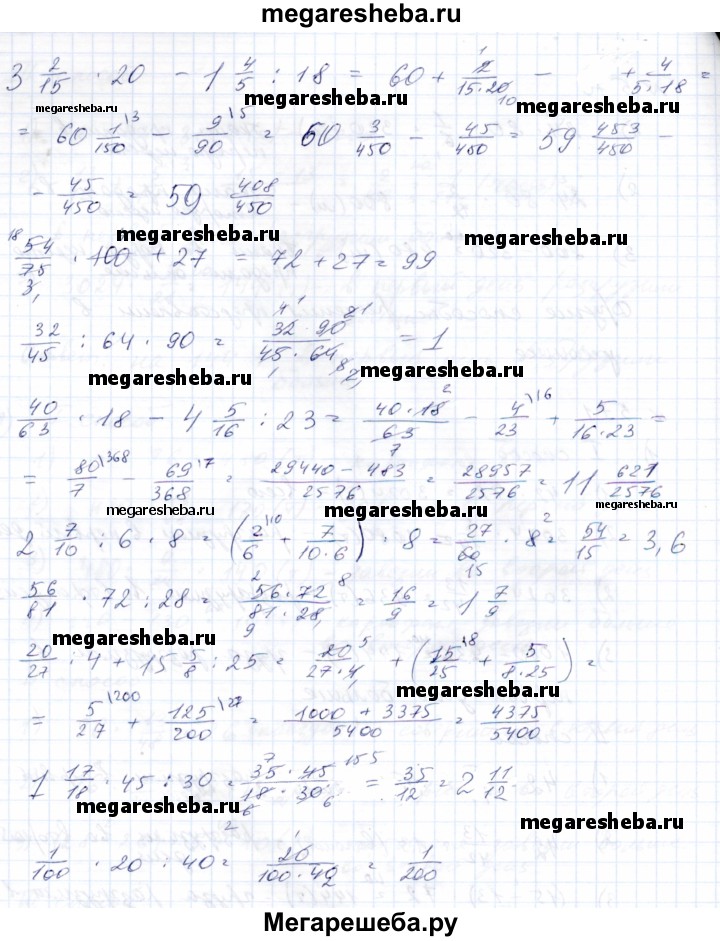 megaresheba.ru
3 2/15 · 20 - 1 4/5 : 18 = 60 + 2/15·20 - + 4/5·18 =
megaresheba.ru megaresheba.ru
= 60 1/150 \3 - 9/90 \5 = 60 3/450 - 45/450 = 59 453/450 -
- 45/450 = 59 408/450
megaresheba.ru megaresheba.ru
54/75 · 100 + 27 = 72 + 27 = 99
32/45 : 64 · 90 = 32·90/45·64 = 1
megaresheba.ru megaresheba.ru
40/63 · 18 - 4 5/16 : 23 = 40·18/63 - 4/23 \16 + 5/16·23 =
= 80/7 \368 - 69/368 \7 = 29440 - 483/2576 = 28957/2576 = 11 621/2576
megaresheba.ru megaresheba.ru
2 7/10 : 6 · 8 = (2/6 \10 + 7/10·6) · 8 = 27/60 · 8 = 54/15 = 3,6
56/81 · 72 : 28 = 56·72/81·28 = 16/9 = 1 7/9
megaresheba.ru
20/27 : 4 + 15 5/8 : 25 = 20/27·4 + (15/25 \8 + 5/8·25) =
megaresheba.ru
= 5/27 \200 + 125/200 \27 = 1000 + 3375/5400 = 4375/5400
1 17/18 · 45 : 30 = 35·45/18·30 = 35/12 = 2 11/12
megaresheba.ru megaresheba.ru
1/100 · 20 : 40 = 20/100·40 = 1/200
Мегарешеба.ру